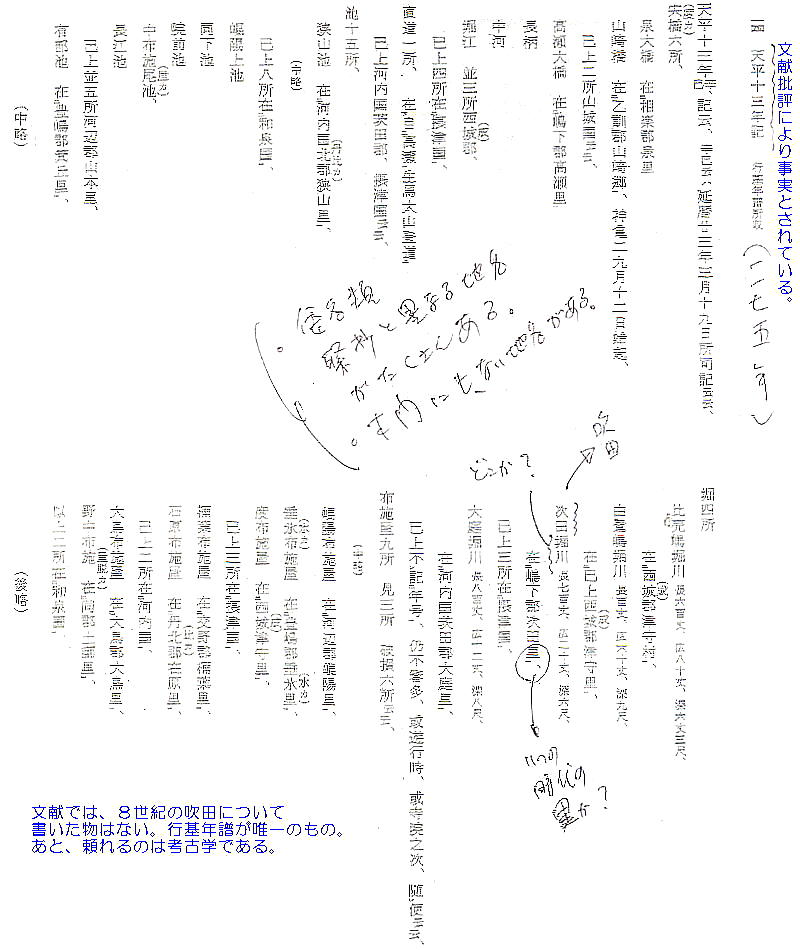 文献批評により事実とされている。
四 天平十三年記 行基年譜所収
(一一七五年)
天平十三年記云、
架橋六所、
泉大橋 在相楽郡泉里
山崎橋 在乙訓郡山崎郷、
已上二所山城国云云、
高瀬大橋 在嶋下郡高瀬里
長柄
中河
堀江 並三所西城郡、
(成)
已上四所在摂津国、
直道一所、
已上河内国茨田郡、摂津国云云、
池十五所、
狭山池 在河内国北郡狭山里、
(丹北カ)
(中略)
已上八所在和泉国、
崐陽上池
同下池
院前池
中布施尾池、
(屋カ)
長江池
已上並五所河辺郡山本里、
有部池 在豊嶋郡箕丘里、
(中略)
。倭名類
聚抄と異なる地名
がたくさんある。
。本内にもない地名がある。
吹田
どこか?
堀四所
比売嶋堀川 長六百丈、広八十丈、深六丈三尺、
在西城郡津守村、
(成)
白鷺嶋堀川 長百丈、広六十丈、深九尺、
在已上西城郡津守里、
(成)
次田堀川 長七百丈、広二十丈、深六尺、
在嶋下郡次田里、
已上三所在摂津国、
大庭堀川 長八百丈、広十二丈、深八尺、
在河内国茨田郡大庭里、
已上不記年号、仍不審多、或遊行時、或寺院之次、随便云云、
布施屋九所 見三所 破損六所云云、
(中略)
崐陽布施屋 在河辺郡崐陽里、
垂氷布施屋 在豊嶋郡垂氷里、
(水カ)
(水カ)
度布施屋 在西城津守里、
(成)
已上三所在摂津国、
楠葉布施屋 在交野郡楠葉里、
石原布施屋 在丹北郡石原里、
(比カ)
已上二所在河内国、
大鳥布施屋 在大鳥郡大鳥里、
野中布施 在同郡土師里、
(屋脱カ)
以上二所在和泉国、
(後略)
いつの
時代の
里か?
文献では、8世紀の吹田について
書いた物はない。行基年譜が唯一のもの。
あと、頼れるのは考古学である。